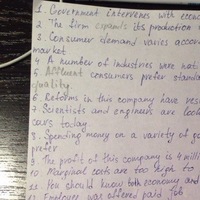 1. Government intervenes with econo
2. The firm expands its production
3. Consumer demand varies accor
market
4 A number of industries were nat
5 Affluent consumers prefer standa
quality
6. Reforms in this company have res
7 Scientists and engineers are look
cars today
8. Spending money on a variety of go
prefer
9 The profit of this company is 4 milli
10 Marginal costs are too high to
11 You should know both economy and
12 Employee was offered paid job